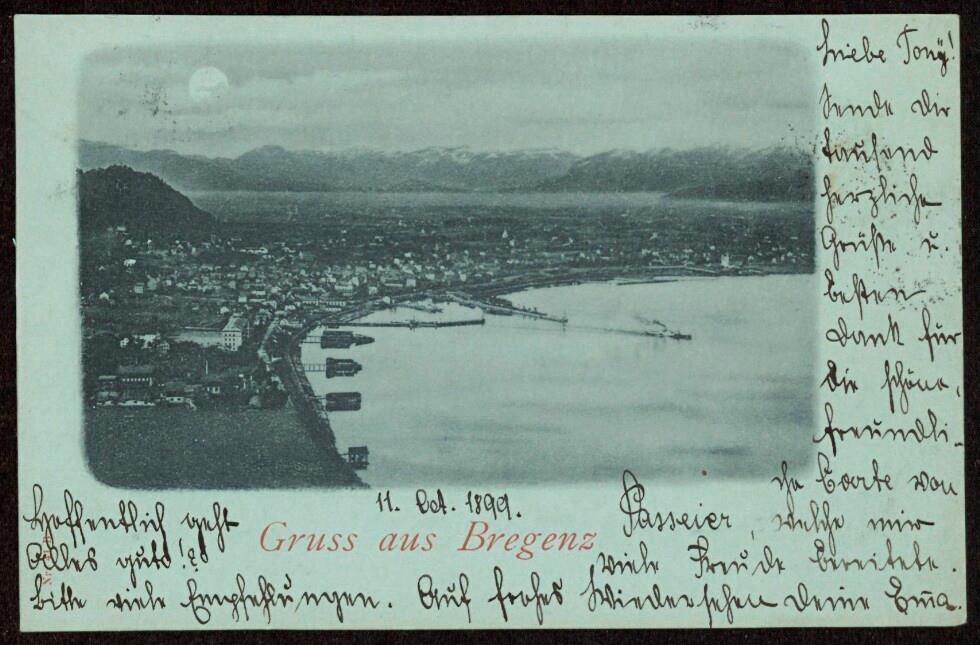 11. Oct. 1899.
Gruss aus Bregenz
Liebe Tony!
Sende Dir
tausend
herzliche
Grüße u.
besten
Dank für
die schöne,
freundli-
che Carte von
Passeier, welche mir
viele Freude bereitete.
Hoffentlich geht
Alles gut!?
Bitte viele Empfehlungen. Auf frohes Wiedersehen Deine Em̅a.